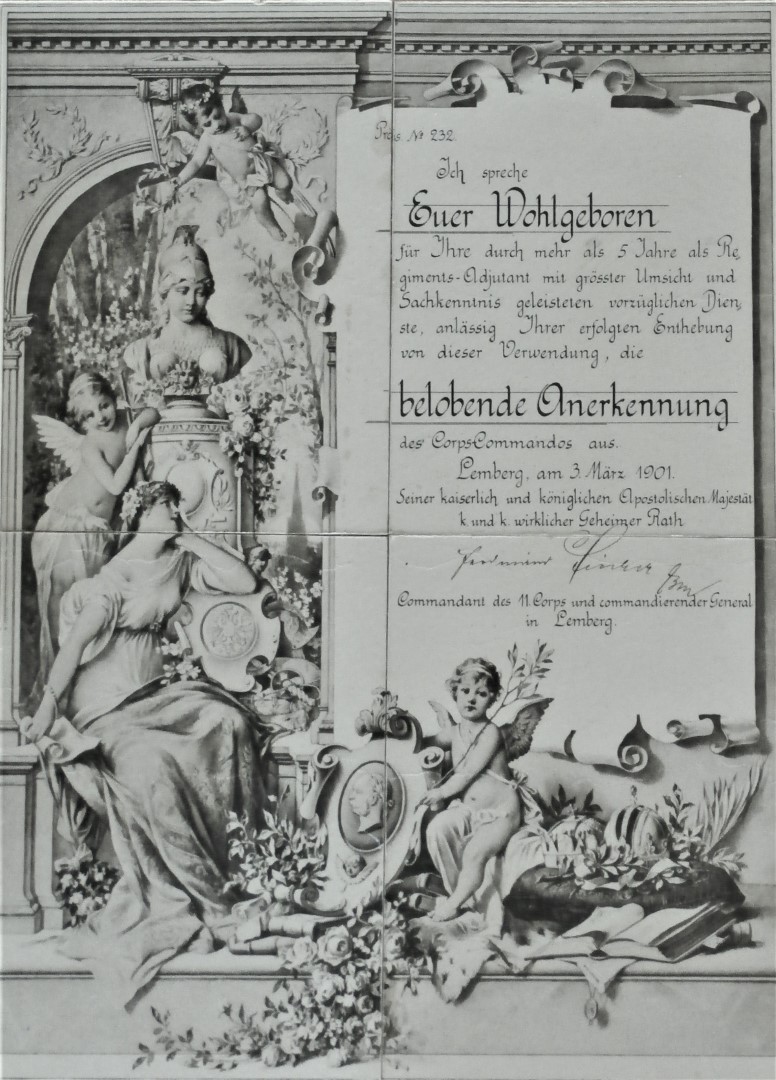 Präs. Nr 232.
Ich spreche
Euer Wohlgeboren
für Ihre durch mehr als 5 Jahre als Re,
giments-Adjutant mit grösster Umsicht und
Sachkenntnis geleisteten vorzüglichen Dien,
ste, anlässig Ihrer erfolgten Enthebung
von dieser Verwendung, die
belobende Anerkennung
des Corps-Commandos aus.
Lemberg, am 3. März 1901.
Seiner kaiserlich und königlichen Apostolischen Majestät
k. und k. wirklicher Geheimer Rath
Commandant des 11. Corps und commandierender General
in Lemberg.